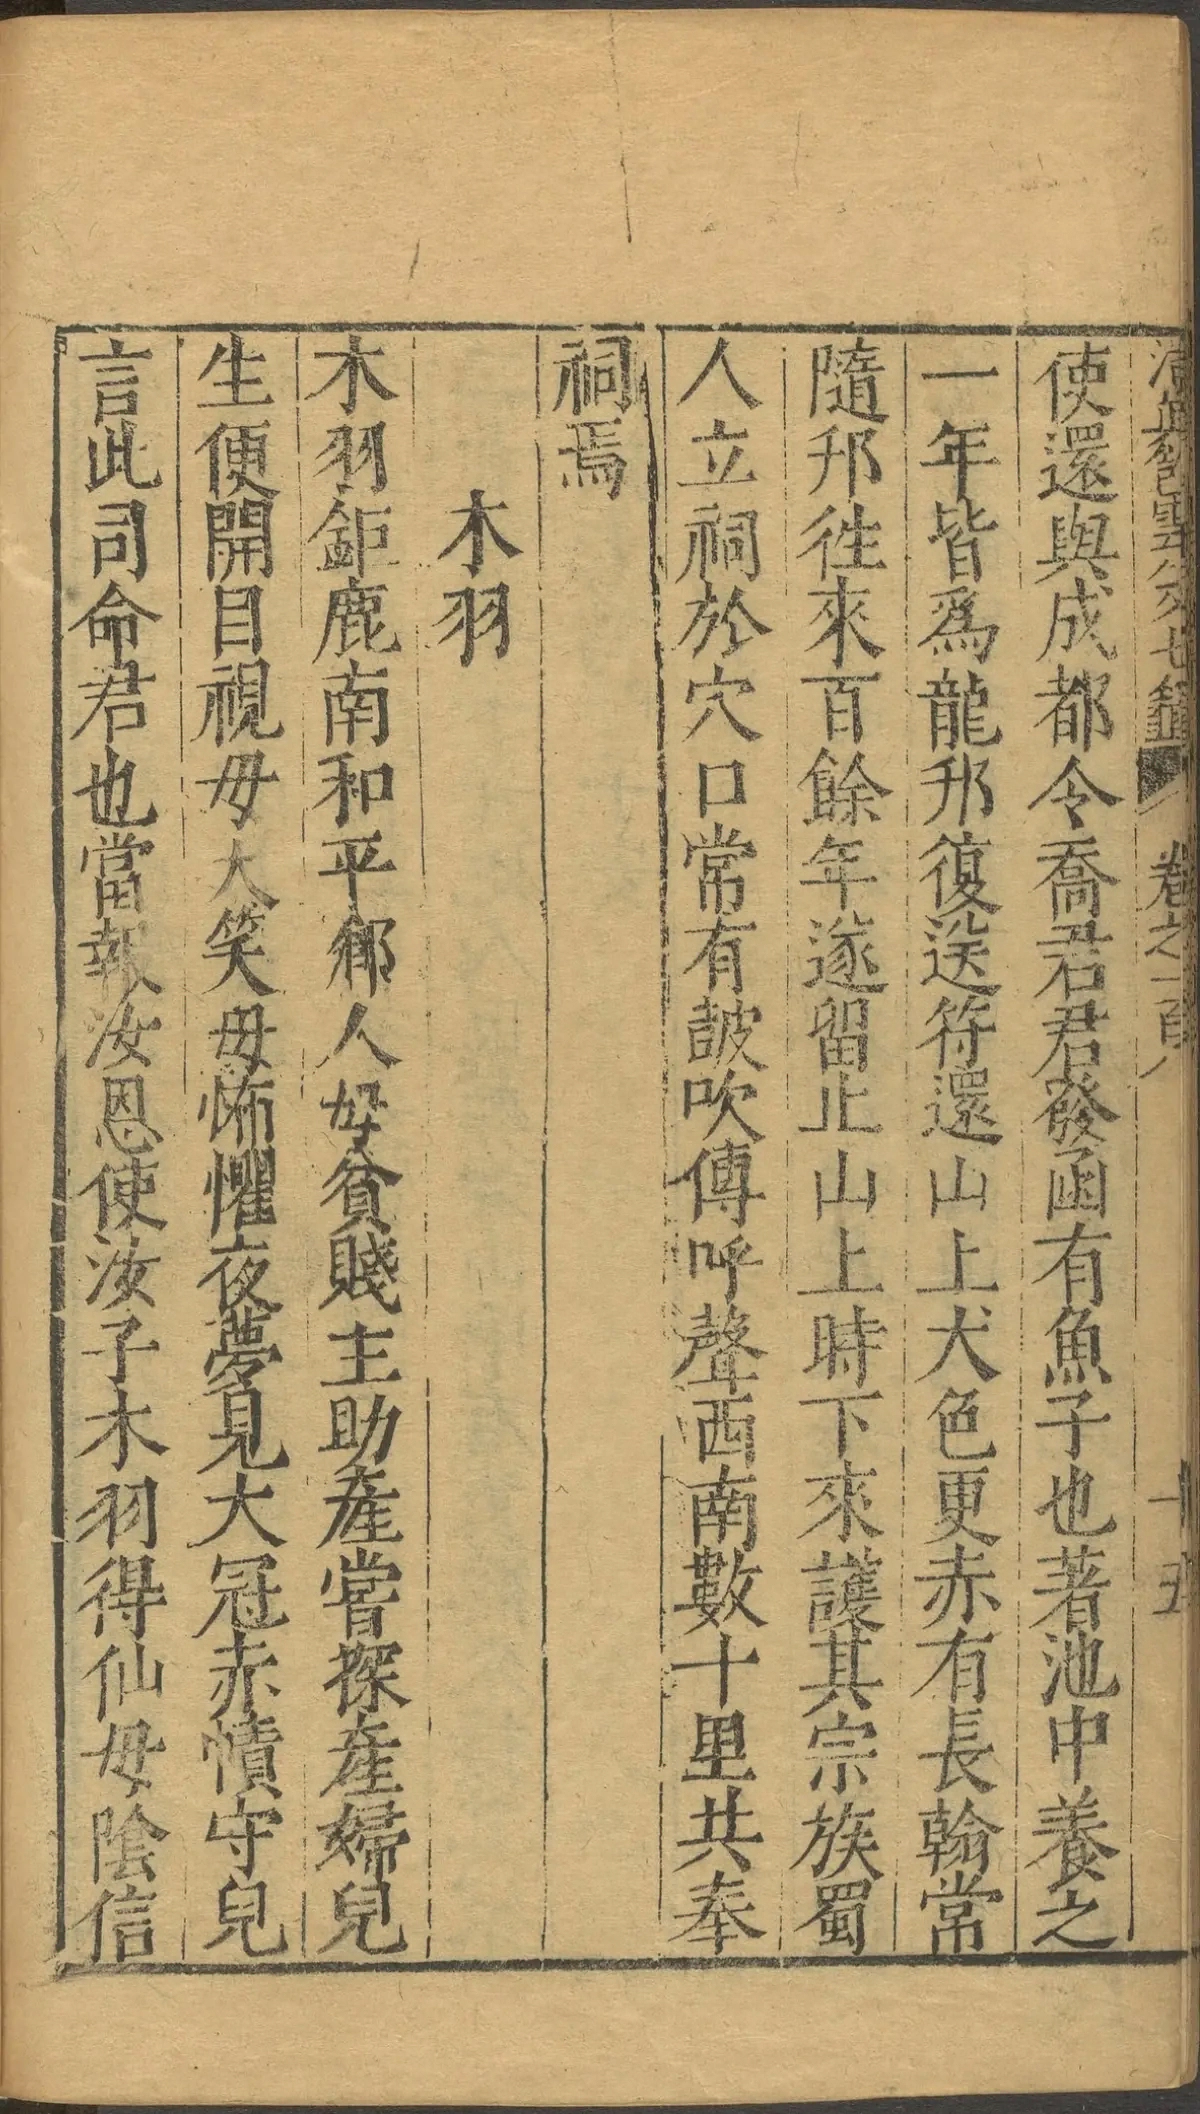 卷之一百八
使還與成都令喬君君發函有魚子也著池中養之
一年皆爲龍邦復送符還山上犬色更赤有長翰常
隨邦徃來百餘年遂留止山上時下來護其宗族蜀
人立祠於穴口常有皷吹傳呼聲西南數十里共奉
祠焉
木羽
木羽鉅鹿南和平鄉人母貧賤主助產嘗探產婦兒
生便開目視母大笑母怖懼夜夢見大冠赤幘守兒
言此司命君也當報汝恩使汝子木羽得仙母陰信